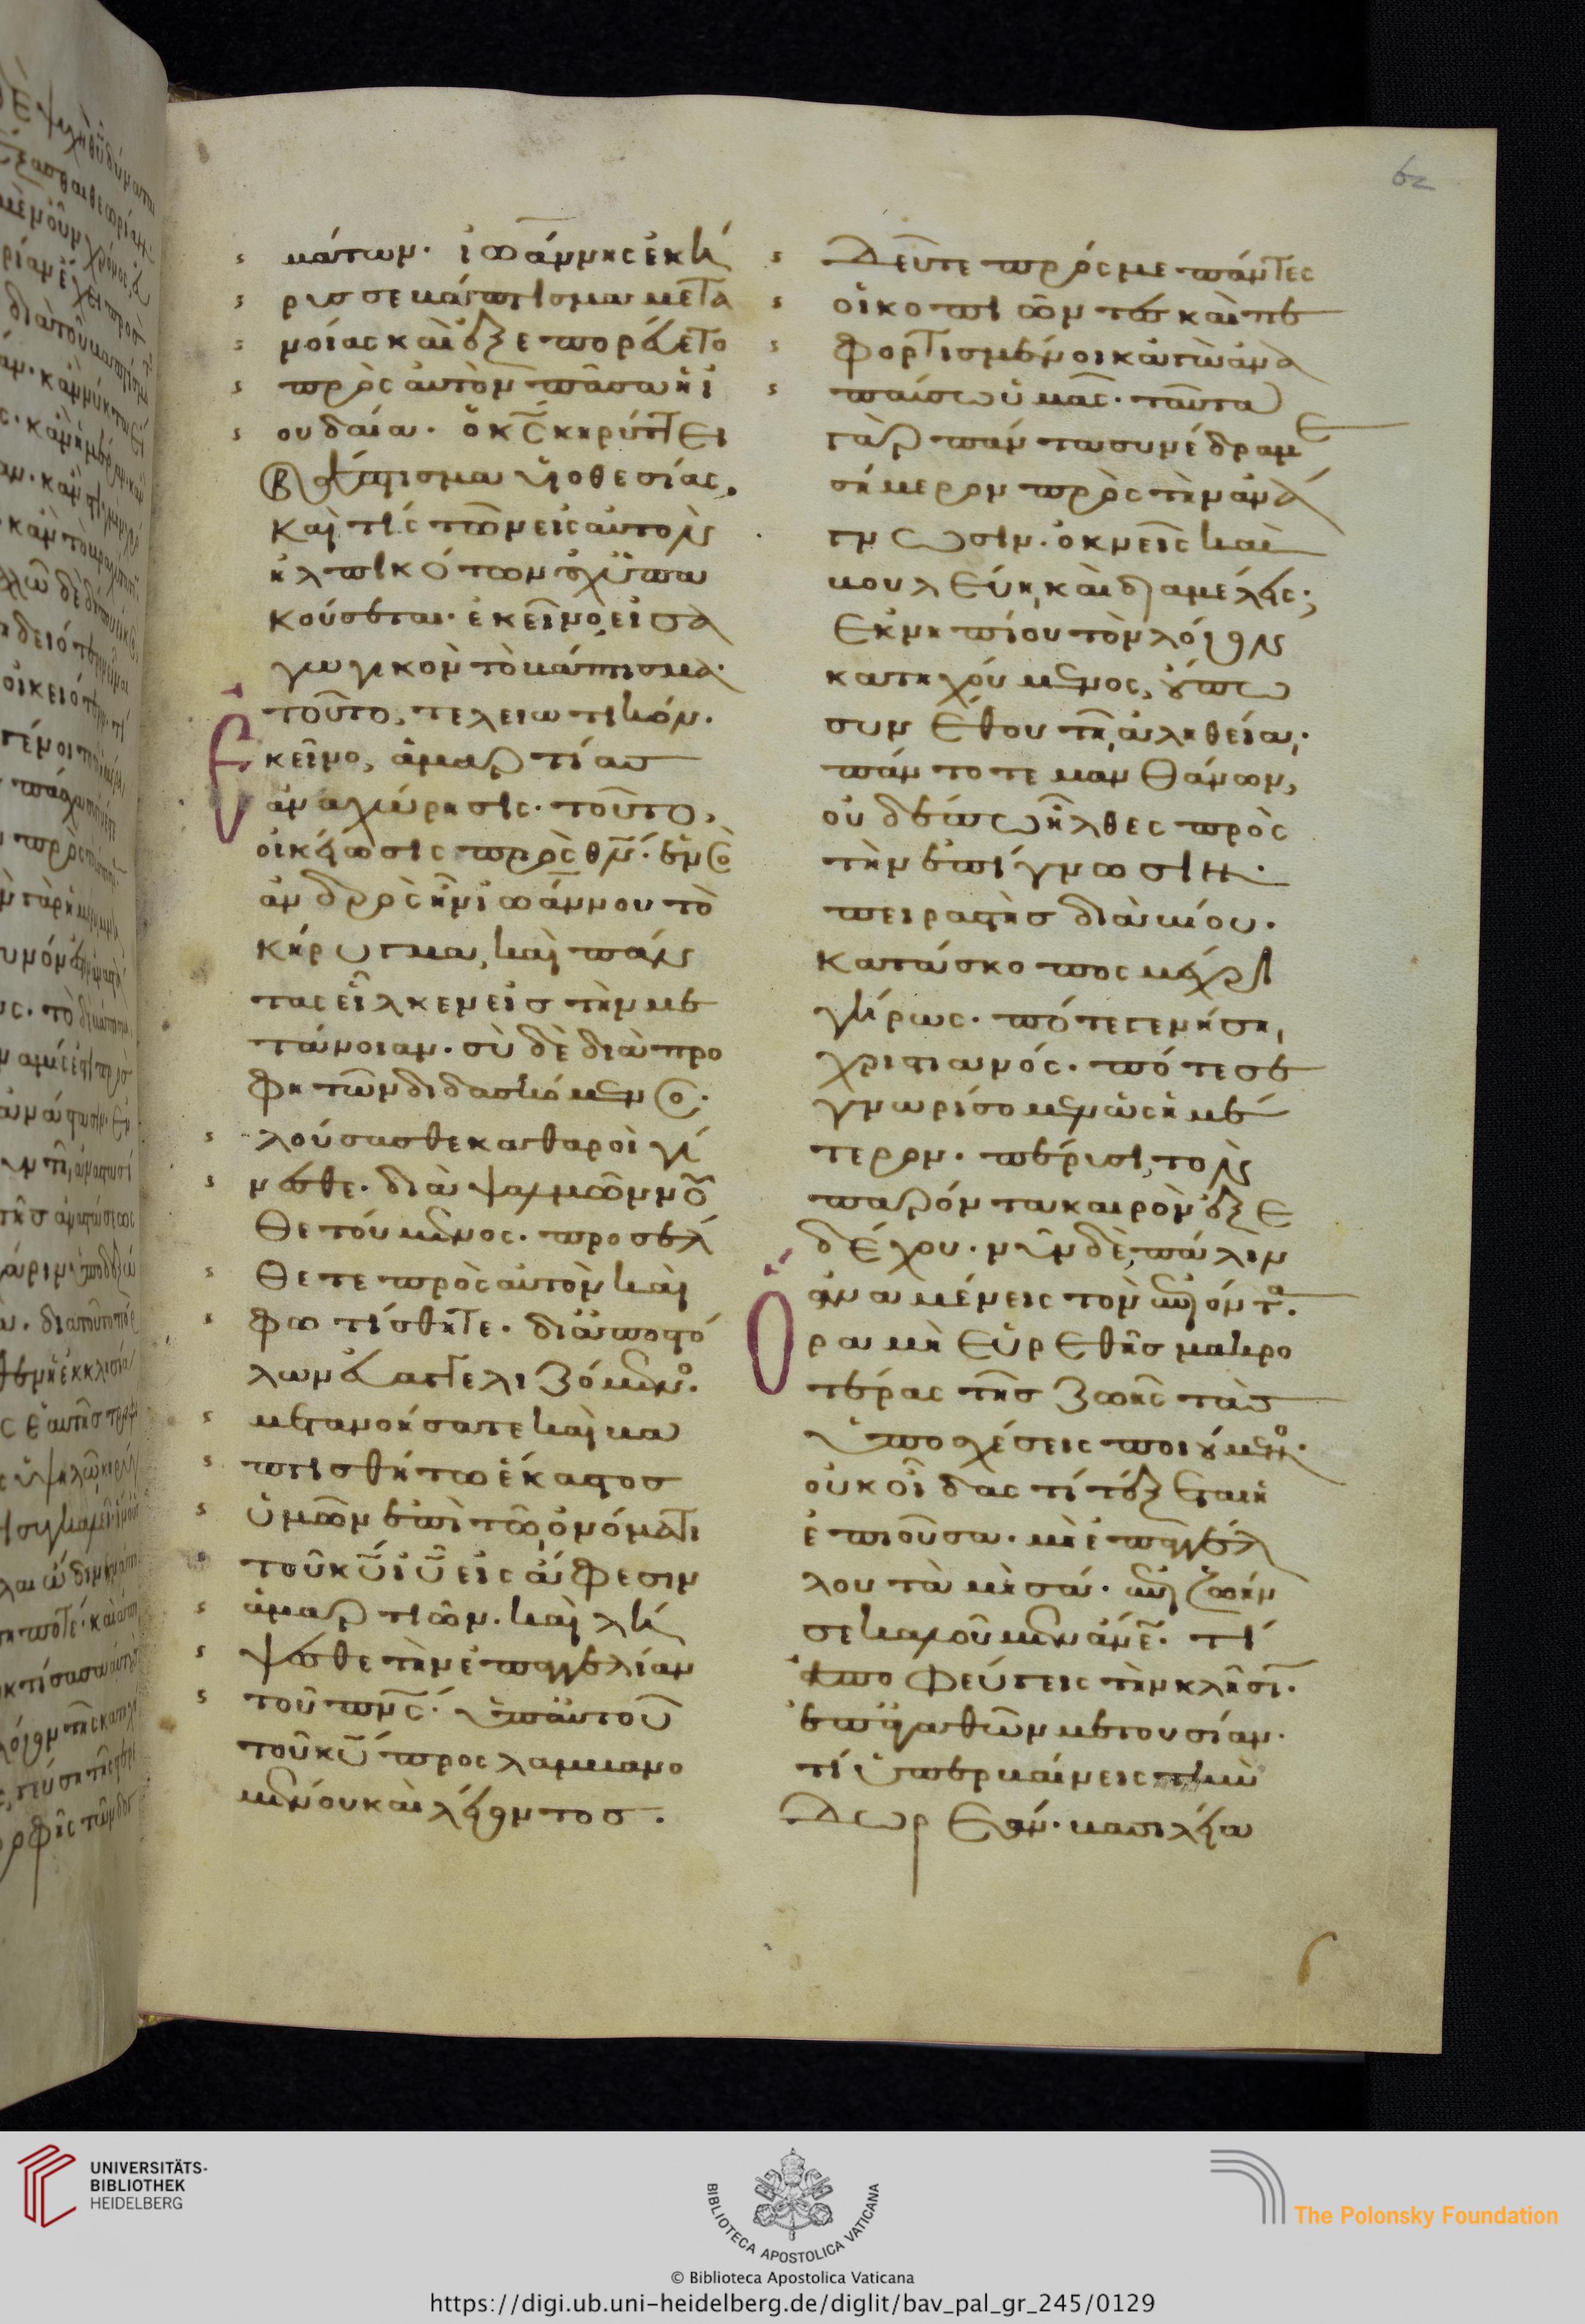 62
μάτων· ἰωάννης ἐκή
ρυσσε βάπτισμα μετα
νοίας καὶ ἐξεπορεύετο
πρὸς αὐτὸν πᾶσα ἡ ἰ
ουδαία· ὁ κ̅ς̅ κηρύττει
βάπτισμα υἱοθεσίας.
καὶ τίς τῶν εἰς αὐτὸν
ἠλπικότων οὐχ ὑπα
κούσεται· ἐκεῖνο εἰσα
γωγικὸν τὸ βάπτισμα·
τοῦτο, τελειωτικόν.
Ἐκεῖνο, ἁμαρτίας
ἀναχώρησις· τοῦτο,
οἰκείωσις πρὸς θν̅· ἑνὸς
ἀνδρὸς ἦν ἰωάννου τὸ
κήρυγμα, καὶ πάν
τας εἷλκεν εἰς τὴν με
τάνοιαν· σὺ δὲ διὰ προ
φητῶν διδασκόμενος·
λούσασθε καθαροὶ γέ
νεσθε· διὰ ψαλμῶν νου
θετούμενος· προσέλ
θετε πρὸς αὐτὸν καὶ
φωτίσθητε· δι' ἀποστό
λων εὐαγγελιζόμενος·
μετανοήσατε καὶ βα
πτισθήτω ἕκαστος
ὑμῶν ἐπὶ τῶ ὀνόματι
τοῦ κ̅υ̅ ἰ̅υ̅ εἰς ἄφεσιν
ἁμαρτιῶν· καὶ λή
ψεσθε τὴν ἐπαγγελίαν
τοῦ πν̅ς̅· ὑπ' αὐτοῦ
τοῦ κ̅υ̅ προσλαμβανο
μένου καὶ λέγοντος·
Δεῦτε πρός με πάντες
οἱ κοπιῶντες καὶ πε
φορτισμένοι κἀγὼ ἀνα
παύσω ὑμᾶς· ταῦτα
γὰρ πάντα συνέδραμε
σήμερον πρὸς τὴν ἀνά
γνωσιν· ὀκνεῖς καὶ
βουλεύη, καὶ διαμέλλεις;
Ἐκ νηπίου τὸν λόγον
κατηχούμενος, οὔπω
συνέθου τῆ ἀληθεία,
πάντοτε μανθάνων,
οὐδέπω ἦλθες πρὸς
τὴν ἐπίγνωσιν·
πειραστὴς διὰ βίου·
κατάσκοπος μέχρι
γήρως· πότε γενήση,
χριστιανός· πότε σε
γνωρίσομεν ὡς ἡμέ
τερον· πέρυσι, τὸν
παρόντα καιρὸν ἐξε
δέχου· νῦν δὲ, πάλιν
ἀναμένεις τὸν ἐπιόντα·
Ὅρα μὴ εὑρεθῆς μακρο
τέρας τῆς ζωῆς τὰς
ὑποσχέσεις ποιούμενος·
οὐκ οἶδας τί τέξεται ἡ
ἐπιοῦσα· μὴ ἐπαγγέλ
λου τὰ μὴ σά· ἐπὶ ζωήν
σε καλοῦμεν ἄνε̅· τί
ἀποφεύγεις τὴν κλῆσιν·
ἐπ' ἀγαθῶν μετουσίαν·
τί ὑπερβαίνεις τὴν
Δωρεάν· βασιλεία
UNIVERSITÄTS-
BIBLIOTHEK
HEIDELBERG
BIBLIOTECA APOSTOLICA VATICANA
The Polonsky Foundation
© Biblioteca Apostolica Vaticana
https://digi.ub.uni-heidelberg.de/diglit/bav_pal_gr_245/0129